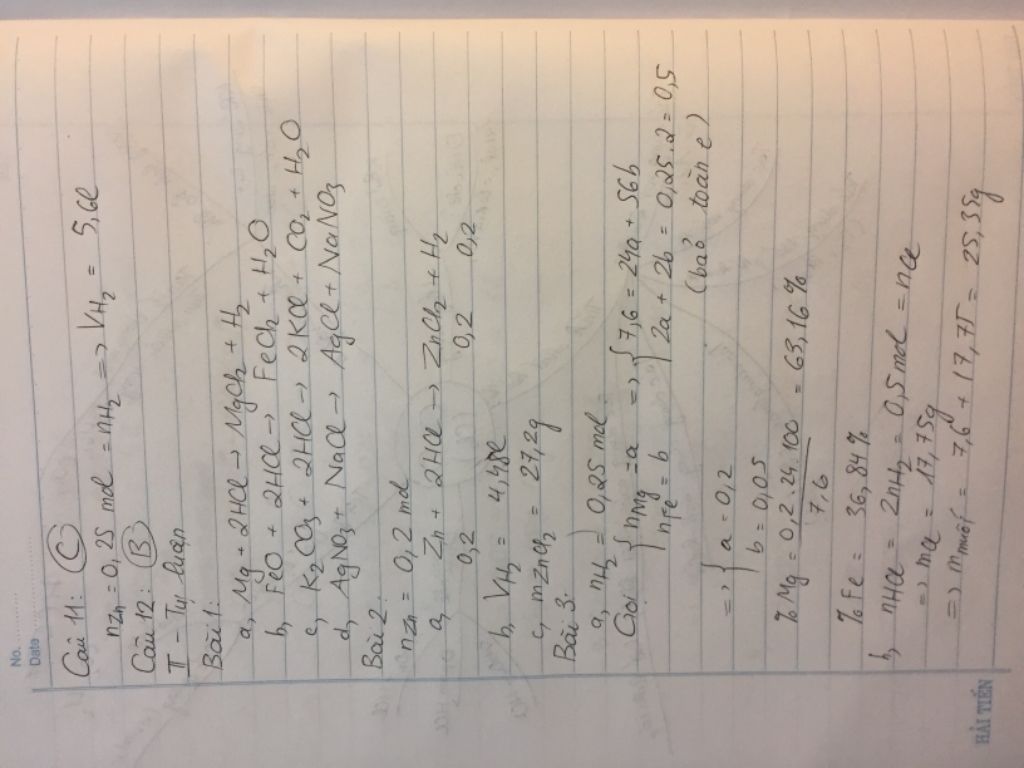 No.
Date
Câu 11: C
nZn = 0,25 mol = nH₂ => VH₂ = 5,6l
Câu 12: B
II - Tự luận
Bài 1:
a, Mg + 2HCl → MgCl₂ + H₂
b, FeO + 2HCl → FeCl₂ + H₂O
c, K₂CO₃ + 2HCl → 2KCl + CO₂ + H₂O
d, AgNO₃ + NaCl → AgCl + NaNO₃
Bài 2:
nZn = 0,2 mol
a, Zn + 2HCl → ZnCl₂ + H₂
0,2 0,2 0,2
b, VH₂ = 4,48l
c, mZnCl₂ = 27,2g
Bài 3:
a, nH₂ = 0,25 mol
Gọi { nMg = a => { 7,6 = 24a + 56b
nFe = b 2a + 2b = 0,25.2 = 0,5
(bảo toàn e)
=> { a = 0,2
b = 0,05
%Mg = 0,2.24.100 = 63,16%
7,6
%Fe = 36,84%
b, nHCl = 2nH₂ = 0,5 mol = nCl
=> mCl = 17,75g
=> m muối = 7,6 + 17,75 = 25,35g
HẢI TIẾN